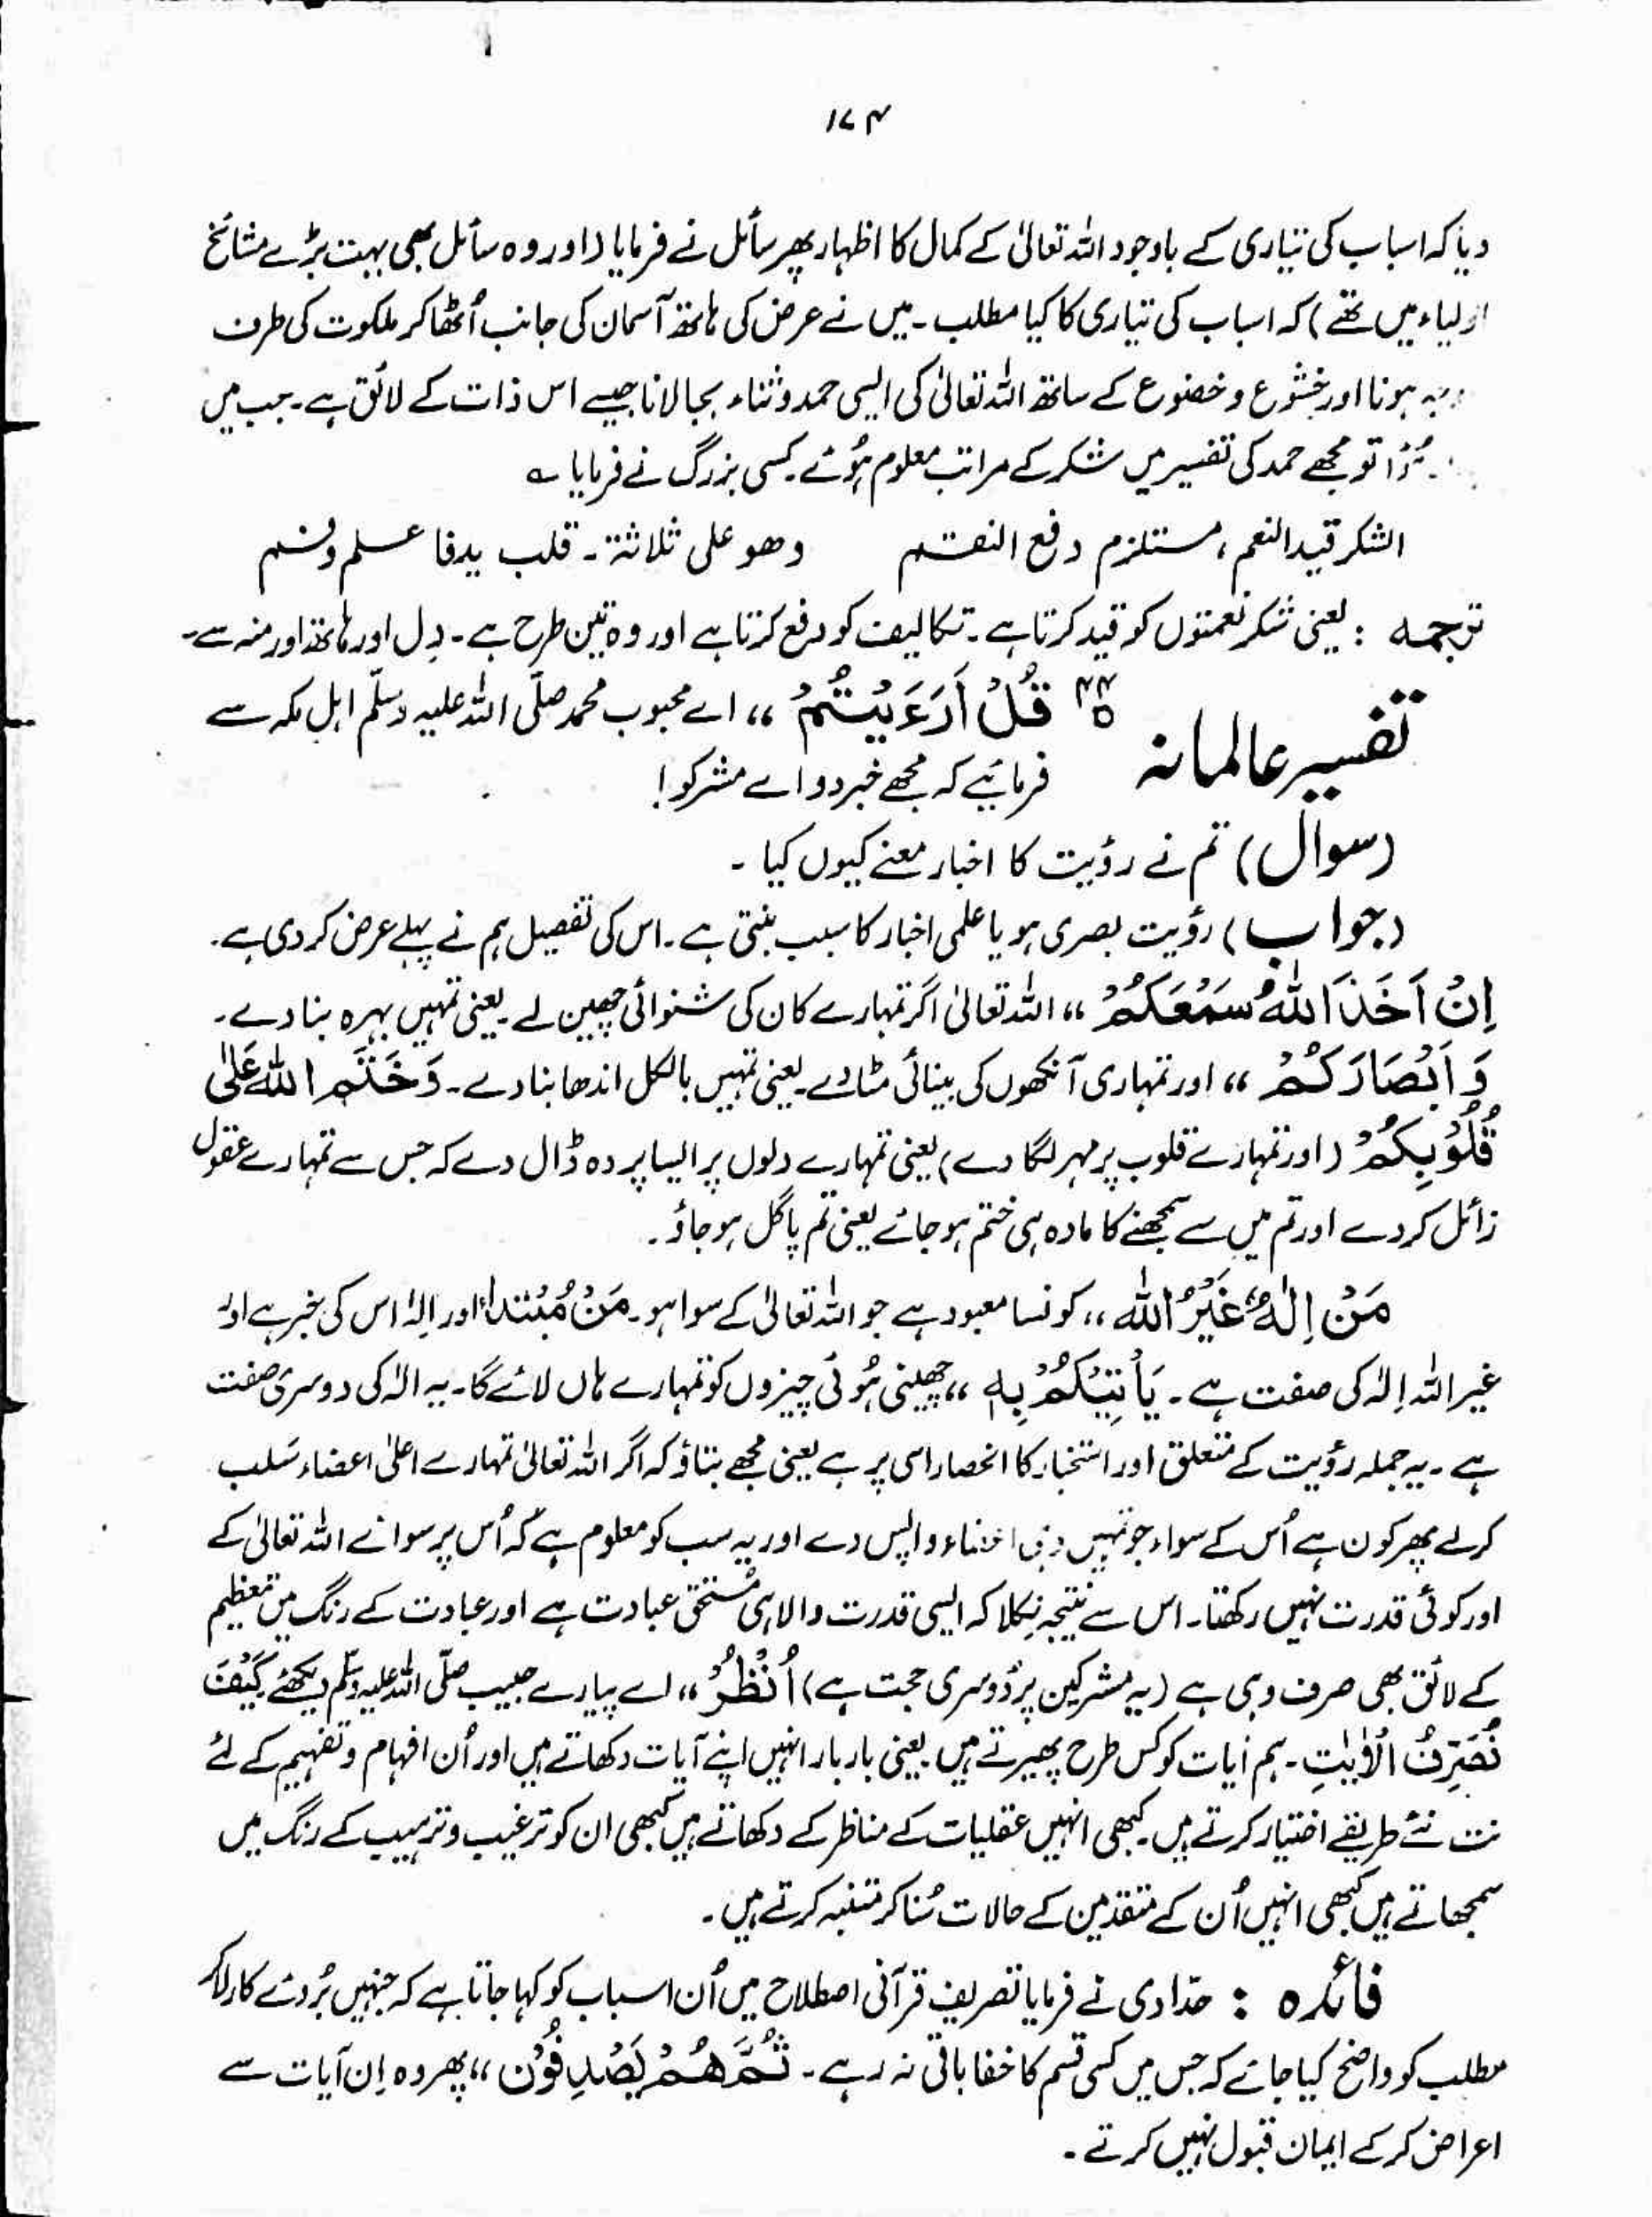 ۱۷۴
دیا کہ اسباب کی تیاری کے باوجود اللہ تعالیٰ کے کمال کا اظہار پھر سائل نے فرمایا (اور وہ سائل بھی بہت بڑے مشائخ
اولیاء میں تھے) کہ اسباب کی تیاری کا کیا مطلب۔ میں نے عرض کی ہاتھ آسمان کی جانب اُٹھا کر ملکوت کی طرف
ہونا اور خشوع و خضوع کے ساتھ اللہ تعالیٰ کی ایسی حمد و ثناء بجا لانا جیسے اس ذات کے لائق ہے۔ جب میں
تو مجھے حمد کی تفسیر میں شکر کے مراتب معلوم ہُوئے۔ کسی بزرگ نے فرمایا ؎
الشکر قید النعم، مستلزم دفع النقم وھو علی ثلاثۃ۔ قلب یدفا علم وفم
ترجمہ : یعنی شکر نعمتوں کو قید کرتا ہے۔ تکالیف کو دفع کرتا ہے اور وہ تین طرح ہے۔ دِل اور ہاتھ اور منہ سے۔
تفسیر عالمانہ
قُلْ اَرَءَیْتُمْ ،، اے محبوب محمد صلّی اللہ علیہ وسلّم اہل مکہ سے
فرمائیے کہ مجھے خبر دو اے مشرکو!
(سوال) تم نے رؤیت کا اخبار معنے کیوں کیا ۔
(جواب) رؤیت بصری ہو یا علمی اخبار کا سبب بنتی ہے۔ اس کی تفصیل ہم نے پہلے عرض کر دی ہے۔
اِنْ اَخَذَ اللہُ سَمْعَکُمْ ،، اللہ تعالیٰ اگر تمہارے کان کی شنوائی چھین لے۔ یعنی تمہیں بہرہ بنا دے۔
وَ اَبْصَارَکُمْ ،، اور تمہاری آنکھوں کی بینائی مٹا دے۔ یعنی تمہیں بالکل اندھا بنا دے۔ وَخَتَمَ اللہُ عَلٰی
قُلُوْبِکُمْ (اور تمہارے قلوب پر مہر لگا دے) یعنی تمہارے دلوں پر ایسا پردہ ڈال دے کہ جس سے تمہارے عقول
زائل کر دے اور تم میں سے سمجھنے کا مادہ ہی ختم ہو جائے یعنی تم پاگل ہو جاؤ۔
مَنْ اِلٰہٌ غَیْرُ اللہ ،، کونسا معبود ہے جو اللہ تعالیٰ کے سوا ہو۔ مَنْ مُبتداءٔ اور اِلٰہ اس کی خبر ہے اور
غیر اللہ اِلٰہ کی صفت ہے۔ یَاْتِیْکُمْ بِہٖ ،، چھینی ہُوئی چیزوں کو تمہارے ہاں لائے گا۔ یہ الٰہ کی دوسری صفت
ہے۔ یہ جملہ رؤیت کے متعلق اور استخبار کا انحصار اسی پر ہے یعنی مجھے بتاؤ کہ اگر اللہ تعالیٰ تمہارے اعلیٰ اعضاء سَلب
کر لے پھر کون ہے اُس کے سواء جو تمہیں وہی اعضاء واپس دے اور یہ سب کو معلوم ہے کہ اُس پر سوائے اللہ تعالیٰ کے
اور کوئی قدرت نہیں رکھتا۔ اس سے نتیجہ نِکلا کہ ایسی قدرت والا ہی مُستحق عبادت ہے اور عبادت کے رنگ میں تعظیم
کے لائق بھی صرف وہی ہے (یہ مشرکین پر دُوسری حجت ہے) اُنْظُرْ ،، اے پیارے حبیب صلّی اللہ علیہ وسلّم دیکھئے کَیْفَ
نُصَرِّفُ الْاٰیٰتِ۔ ہم آیات کو کس طرح پھیرتے ہیں۔ یعنی بار بار انہیں اپنے آیات دکھاتے ہیں اور اُن افہام و تفہیم کے لئے
نت نئے طریقے اختیار کرتے ہیں۔ کبھی انہیں عقلیات کے مناظر کے دکھاتے ہیں کبھی ان کو ترغیب و ترہیب کے رنگ میں
سمجھاتے ہیں کبھی انہیں اُن کے متقدمین کے حالات سُنا کر متنبہ کرتے ہیں۔
فائدہ : حدّادی نے فرمایا تصریف قرآنی اصطلاح میں اُن اسباب کو کہا جاتا ہے کہ جنہیں بُروئے کار لا کر
مطلب کو واضح کیا جائے کہ جس میں کسی قسم کا خفا باقی نہ رہے۔ ثُمَّ ھُمْ یَصْدِفُوْن ،، پھر وہ اِن آیات سے
اعراض کر کے ایمان قبول نہیں کرتے ۔